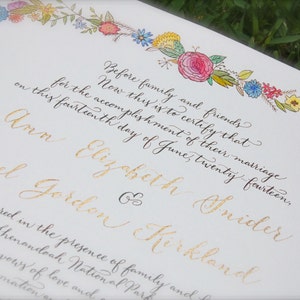 Before family and friends
Now this is to certify that
for the accomplishment of their marriage
on this fourteenth day of June, twenty fourteen,
Ann Elizabeth Snider
&
Gordon Kirkland
in the presence of family and
Shenandoah National Park
vows of love and
and